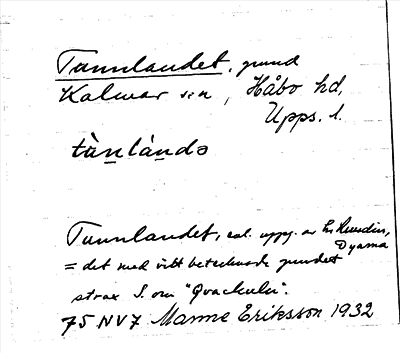 Tunnlandet, grund
Kalmar sn, Håbo hd,
Upps. l.
tùn̠làn̠də
Tunnlandet, enl. uppg. av hr Rundin,
Dyarna
= det med vitt betecknade grundet
strax S. om "Qvackulu".
75 NV7 Manne Eriksson 1932